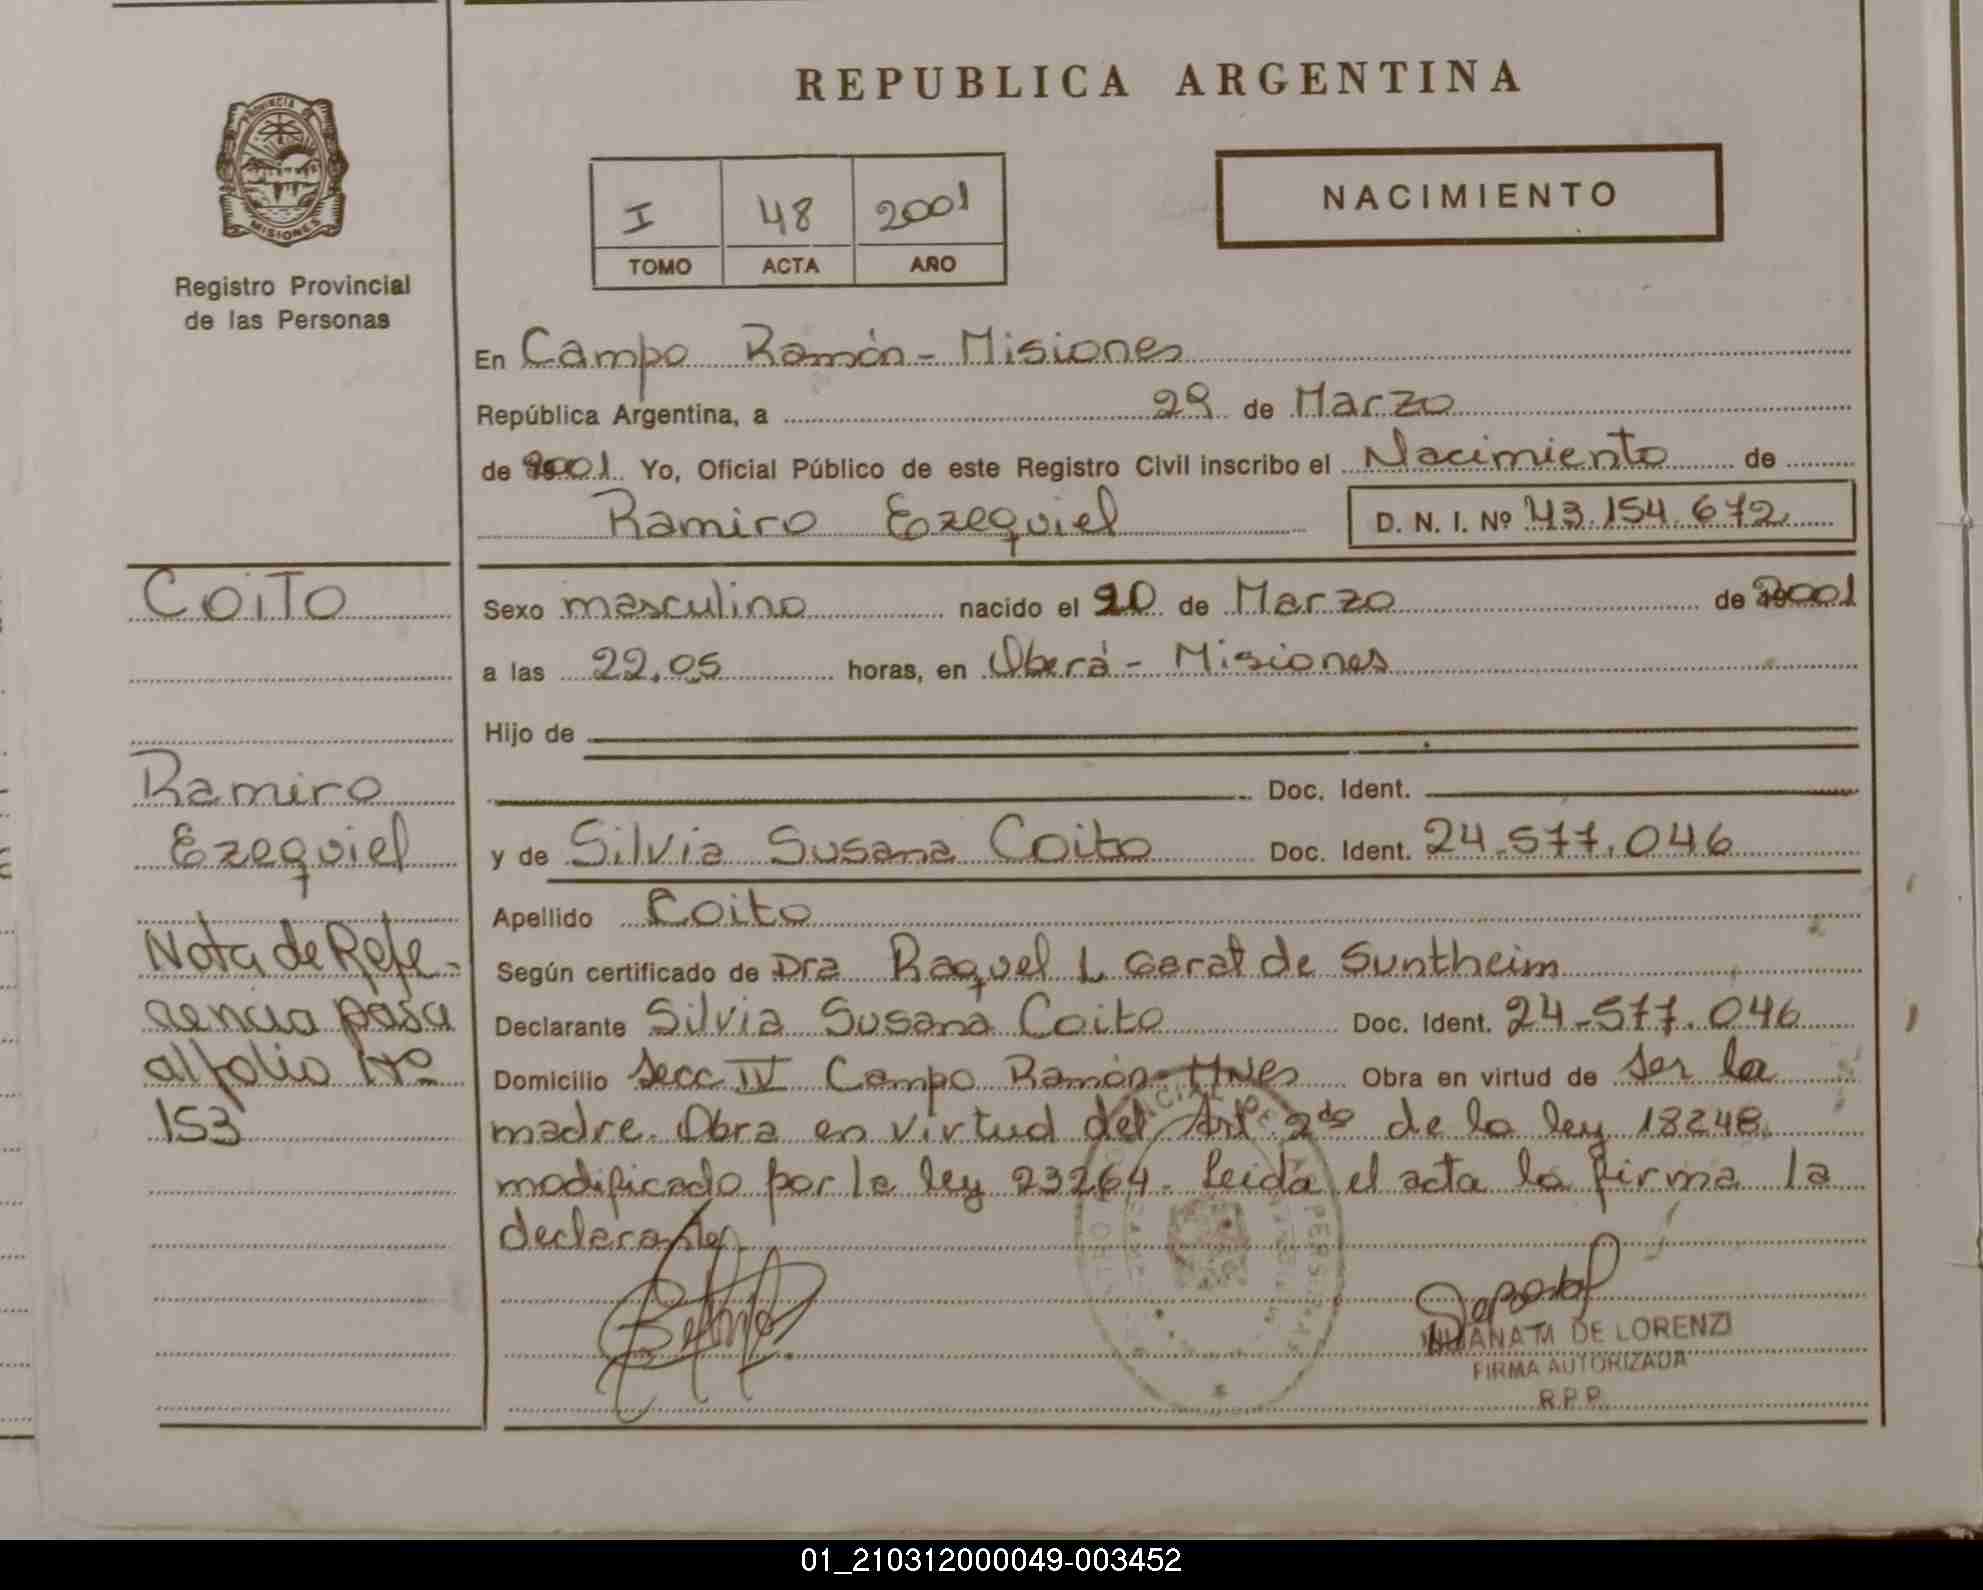 REPUBLICA ARGENTINA
PROVINCIA DE MISIONES
Registro Provincial
de las Personas
I 48 2001
TOMO ACTA AÑO
NACIMIENTO
En Campo Ramón - Misiones
República Argentina, a 29 de Marzo
de 2001 Yo, Oficial Público de este Registro Civil inscribo el Nacimiento de
Ramiro Ezequiel D. N. I. Nº 43.154.672
Coito
Sexo masculino nacido el 20 de Marzo de 2001
a las 22.05 horas, en Oberá - Misiones
Hijo de
Doc. Ident.
Ramiro
Ezequiel
y de Silvia Susana Coito Doc. Ident. 24.577.046
Apellido Coito
Nota de Refe-
rencia pasa
al folio Nro
153
Según certificado de Dra Raquel L Garat de Suntheim
Declarante Silvia Susana Coito Doc. Ident. 24.577.046
Domicilio Secc IV Campo Ramón - Mnes Obra en virtud de ser la
madre. Obra en virtud del Art. 2do de la ley 18248
modificado por la ley 23264. Leida el acta la firma la
declarante
DE LORENZI
FIRMA AUTORIZADA
R.P.P.
01_210312000049-003452